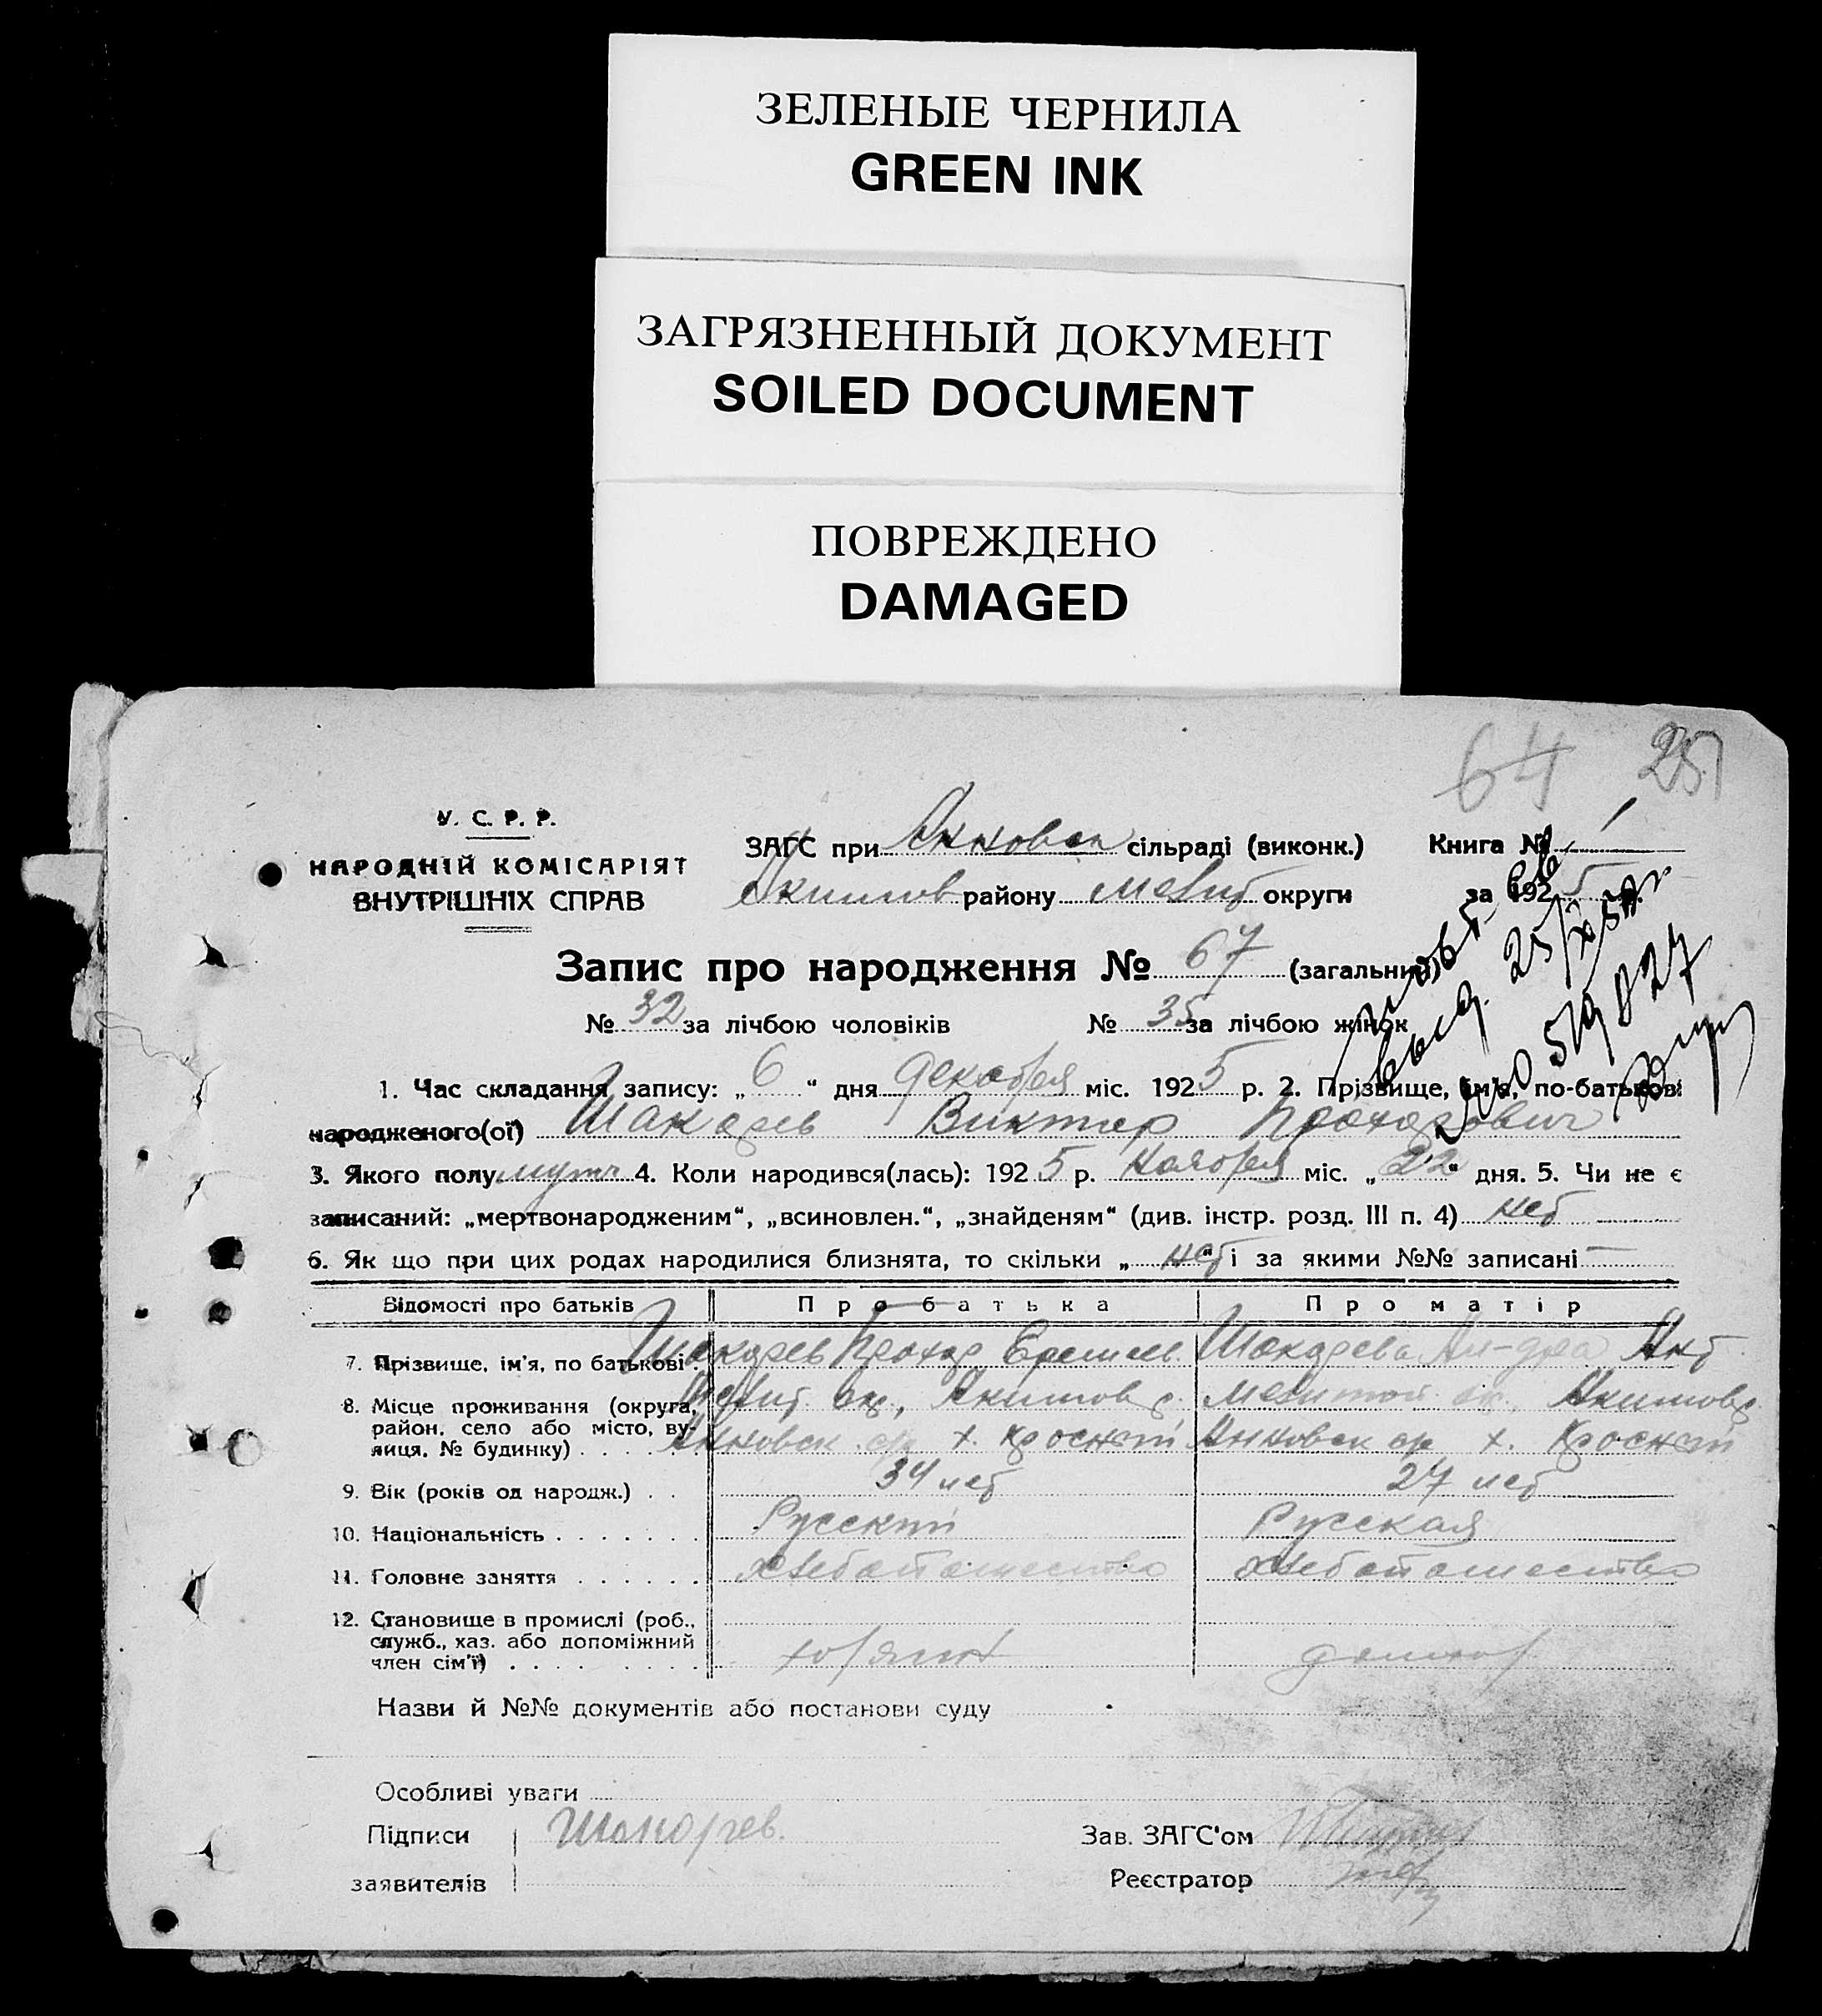 ЗЕЛЕНЫЕ ЧЕРНИЛА
GREEN INK
ЗАГРЯЗНЕННЫЙ ДОКУМЕНТ
SOILED DOCUMENT
ПОВРЕЖДЕНО
DAMAGED
64
У. С. Р. Р.
НАРОДНІЙ КОМІСАРІЯТ
ВНУТРІШНІХ СПРАВ
ЗАГС при Анновск сільраді (виконк.) Книга №
Акимов району Мелит округи за 1925
Запис про народження № 67 (загальний)
№ 32 за лічбою чоловіків № 35 за лічбою жінок
выд. 25/X
519827
1. Час складання запису: „ 6 “ дня декабря міс. 1925 р. 2. Прізвище, ім'я, по-батькові
народженого(ої) Шакарев Виктор Прохорович
3. Якого полу муж 4. Коли народився(лась): 1925 р. Ноября міс. „ 22 “ дня. 5. Чи не є
записаний: „мертвонародженим“, „всиновлен.“, „знайденям“ (див. інстр. розд. III п. 4) нет
6. Як що при цих родах народилися близнята, то скільки „ нет “ і за якими №№ записані —
Відомості про батьків Про батька Про матір
7. Прізвище, ім'я, по батькові Шакарев Прохор Шакарева Ал-дра Ант
8. Місце проживання (округа, район, село або місто, вулиця, № будинку) Мелит. ок., Акимов р. Мелитоп. ок., Акимов р.
Анновск х. Красный Анновск х. Красный
9. Вік (років од народж.) 34 лет 27 лет
10. Національність Русский Русская
11. Головне заняття хлебопашество хлебопашество
12. Становище в промислі (роб., служб., хаз. або допоміжний член сім'ї)
Назви й №№ документів або постанови суду
Особливі уваги
Підписи Шакарев. Зав. ЗАГС'ом
заявителів Реєстратор